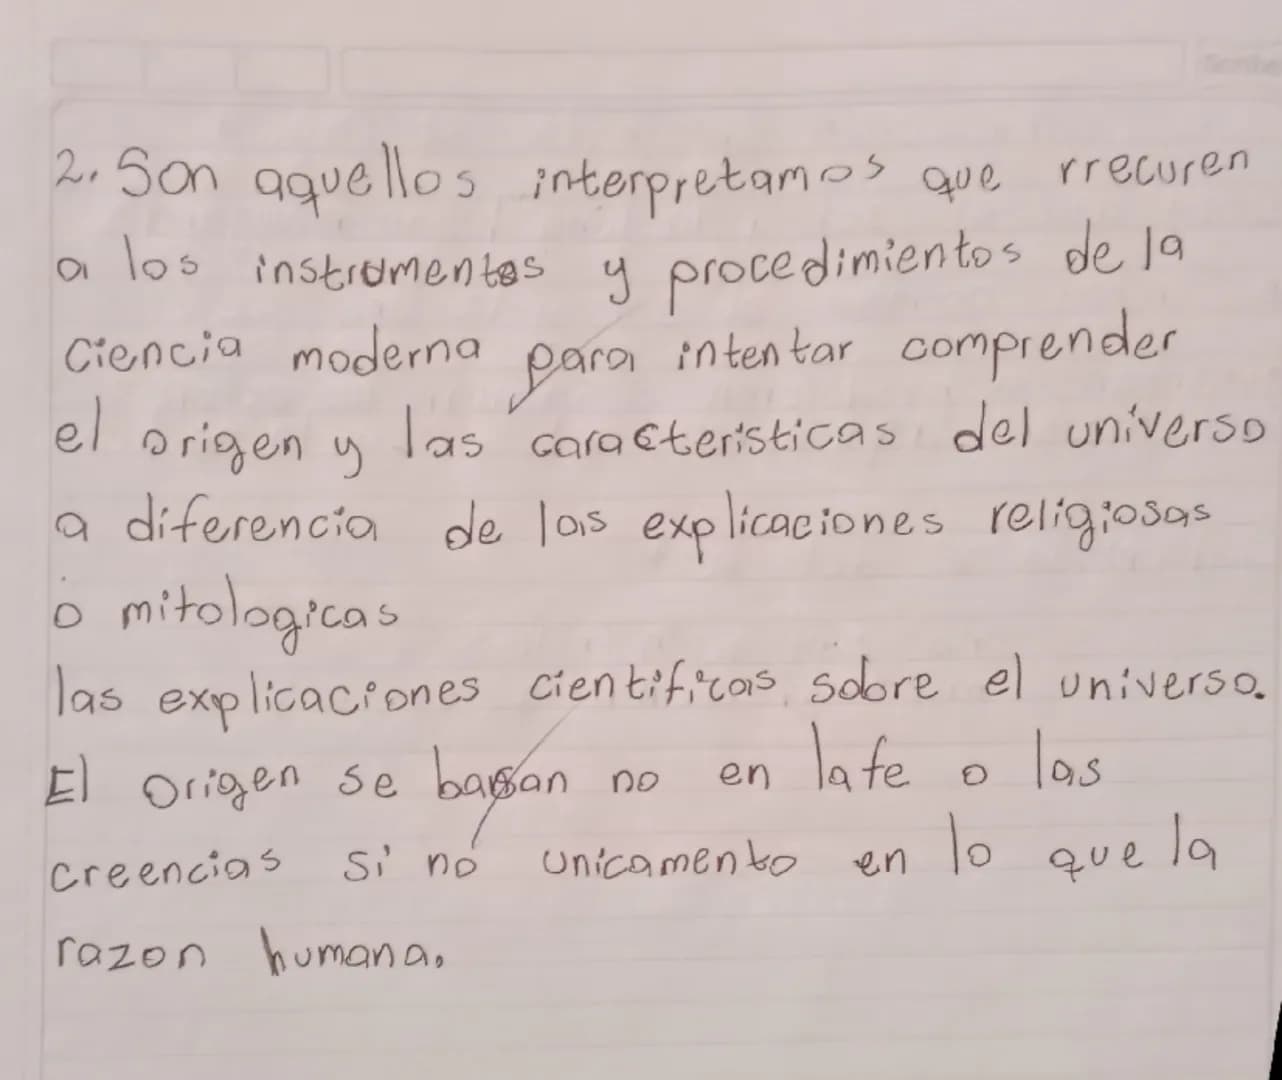 2. Son aquellos interpretamos que rrecuren
a los instrumentos y procedimientos de la
Ciencia moderna para intentar comprender
el origen y las caracteristicas del universo
a diferencia de las explicaciones religiosas
o mitologicas
las explicaciones cientificas sobre el universo.
El origen se basan no en la fe o las
creencias si no unicamento en lo que la
razon humana.